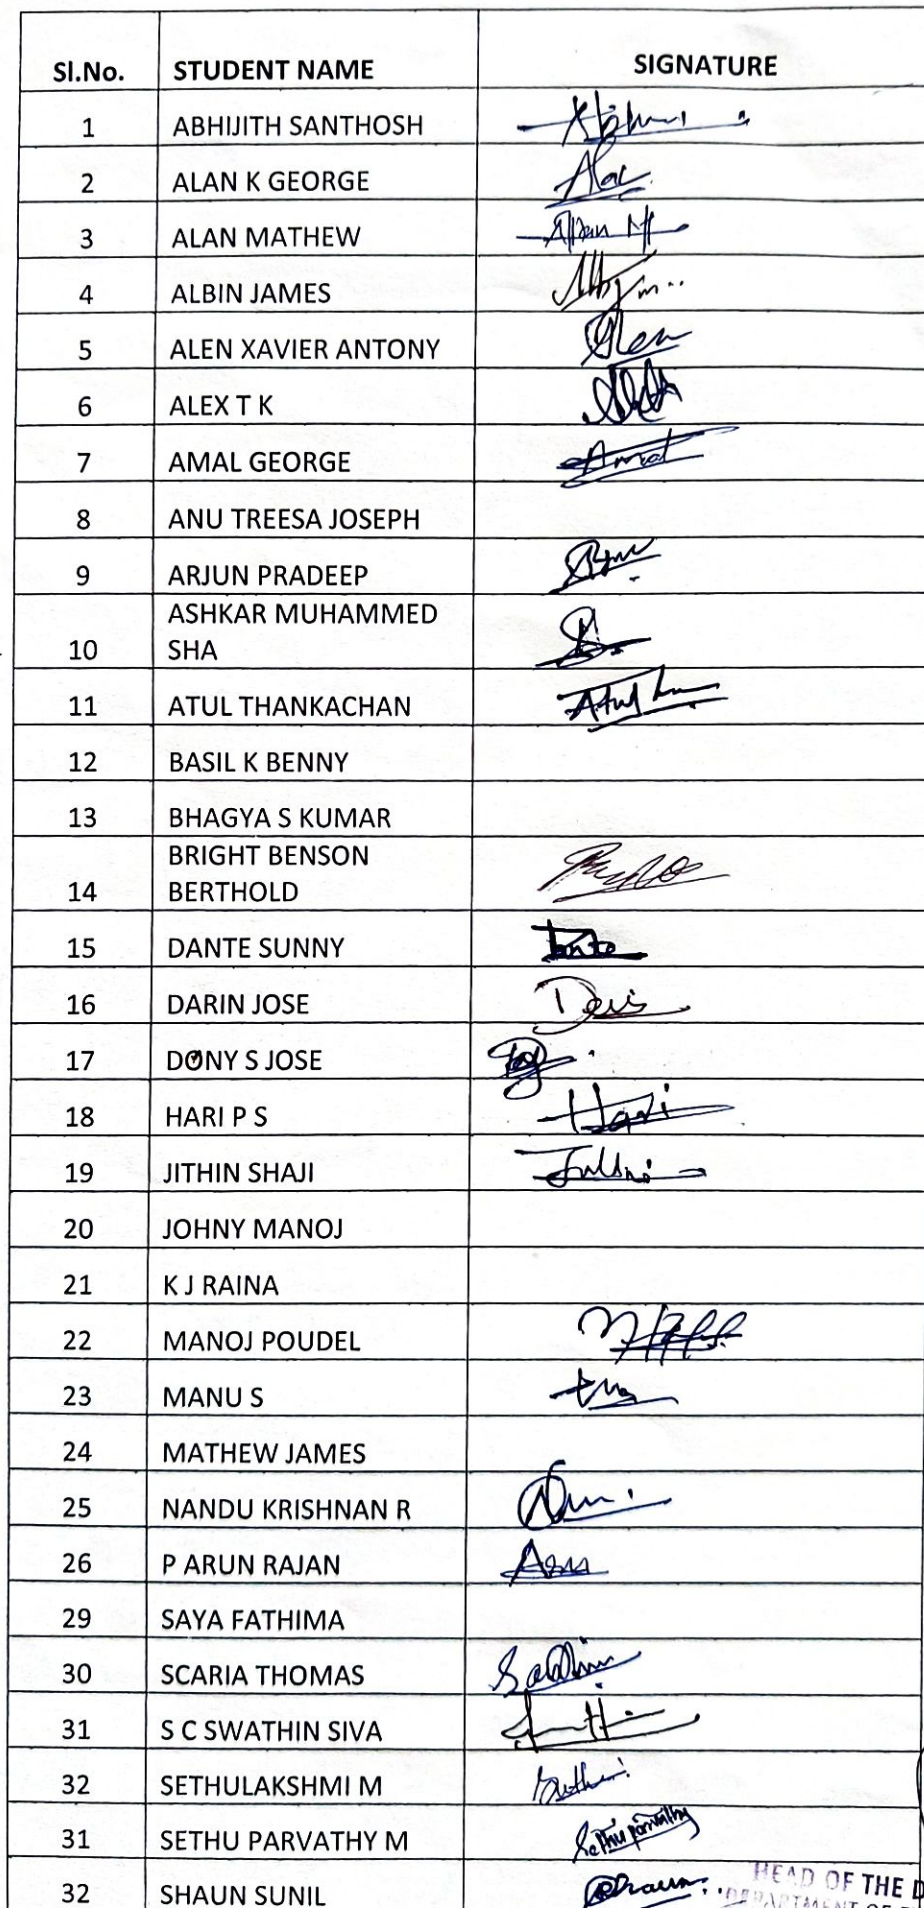 Sl.No. STUDENT NAME SIGNATURE
1 ABHIJITH SANTHOSH
2 ALAN K GEORGE Alan
3 ALAN MATHEW Alan M
4 ALBIN JAMES
5 ALEN XAVIER ANTONY Alen
6 ALEX T K
7 AMAL GEORGE Amal
8 ANU TREESA JOSEPH
9 ARJUN PRADEEP
ASHKAR MUHAMMED
10 SHA
11 ATUL THANKACHAN Atul
12 BASIL K BENNY
13 BHAGYA S KUMAR
BRIGHT BENSON
14 BERTHOLD
15 DANTE SUNNY Dante
16 DARIN JOSE
17 DONY S JOSE
18 HARI P S Hari
19 JITHIN SHAJI
20 JOHNY MANOJ
21 K J RAINA
22 MANOJ POUDEL
23 MANU S
24 MATHEW JAMES
25 NANDU KRISHNAN R
26 P ARUN RAJAN
29 SAYA FATHIMA
30 SCARIA THOMAS
31 S C SWATHIN SIVA
32 SETHULAKSHMI M
31 SETHU PARVATHY M Sethu parvathy
32 SHAUN SUNIL Shaun
HEAD OF THE D
DEPARTMENT OF